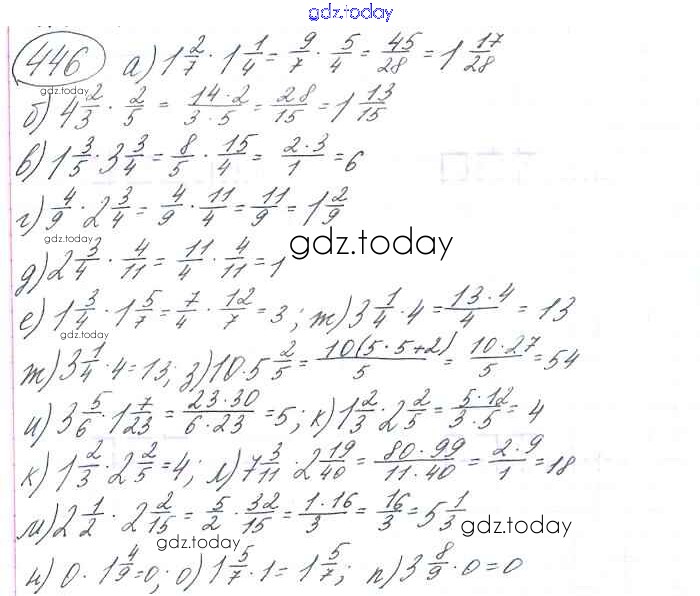 gdz.today
446 а) 1 2/7 · 1 1/4 = 9/7 · 5/4 = 45/28 = 1 17/28
gdz.today
б) 4 2/3 · 2/5 = 14·2/3·5 = 28/15 = 1 13/15
в) 1 3/5 · 3 3/4 = 8/5 · 15/4 = 2·3/1 = 6
г) 4/9 · 2 3/4 = 4/9 · 11/4 = 11/9 = 1 2/9
gdz.today
gdz.today
д) 2 3/4 · 4/11 = 11/4 · 4/11 = 1
е) 1 3/4 · 1 5/7 = 7/4 · 12/7 = 3; ж) 3 1/4 · 4 = 13·4/4 = 13
gdz.today
ж) 3 1/4 · 4 = 13; з) 10 · 5 2/5 = 10(5·5+2)/5 = 10·27/5 = 54
и) 3 5/6 · 1 7/23 = 23·30/6·23 = 5; к) 1 2/3 · 2 2/5 = 5·12/3·5 = 4
к) 1 2/3 · 2 2/5 = 4; л) 7 3/11 · 2 19/40 = 80·99/11·40 = 2·9/1 = 18
м) 2 1/2 · 2 2/15 = 5/2 · 32/15 = 1·16/3 = 16/3 = 5 1/3
gdz.today
gdz.today
н) 0 · 1 4/9 = 0; о) 1 5/7 · 1 = 1 5/7; п) 3 8/9 · 0 = 0